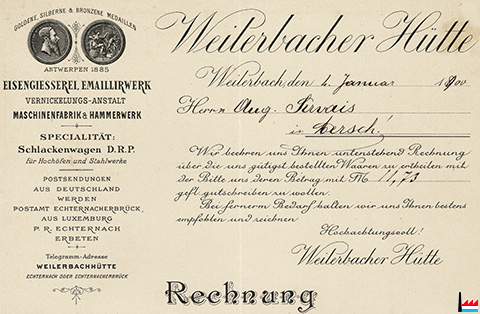 GOLDENE, SILBERNE & BRONZENE MEDAILLEN
ANTWERPEN 1885
EISENGIESSEREI, EMAILLIRWERK
VERNICKELUNGS-ANSTALT
MASCHINENFABRIK & HAMMERWERK
SPECIALITÄT:
Schlackenwagen D.R.P.
für Hochöfen und Stahlwerke
POSTSENDUNGEN
AUS DEUTSCHLAND
WERDEN
POSTAMT ECHTERNACHERBRÜCK,
AUS LUXEMBURG
P. R. ECHTERNACH
ERBETEN
Telegramm-Adresse
WEILERBACHHÜTTE
ECHTERNACH ODER ECHTERNACHERBRÜCK
Weilerbacher Hütte
Weilerbach, den 4. Januar 1900
Herrn Aug. Servais
in Mersch
Wir beehren uns Ihnen untenstehend Rechnung
über die uns gütigst bestellten Waaren zu ertheilen mit
der Bitte uns deren Betrag mit M 11,73
gefl. gutschreiben zu wollen.
Bei fernerm Bedarf halten wir uns Ihnen bestens
empfohlen und zeichnen
Hochachtungsvoll!
Weilerbacher Hütte
Rechnung